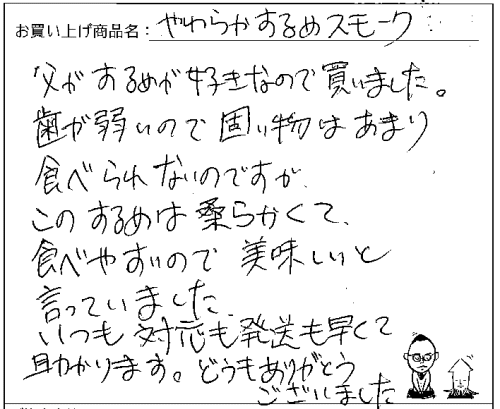 お買い上げ商品名：やわらかするめスモーク
父がするめが好きなので買いました。
歯が弱いので固い物はあまり
食べられないのですが、
このするめは柔らかくて、
食べやすいので美味しいと
言っていました。
いつも対応も発送も早くて
助かります。どうもありがとう
ございました